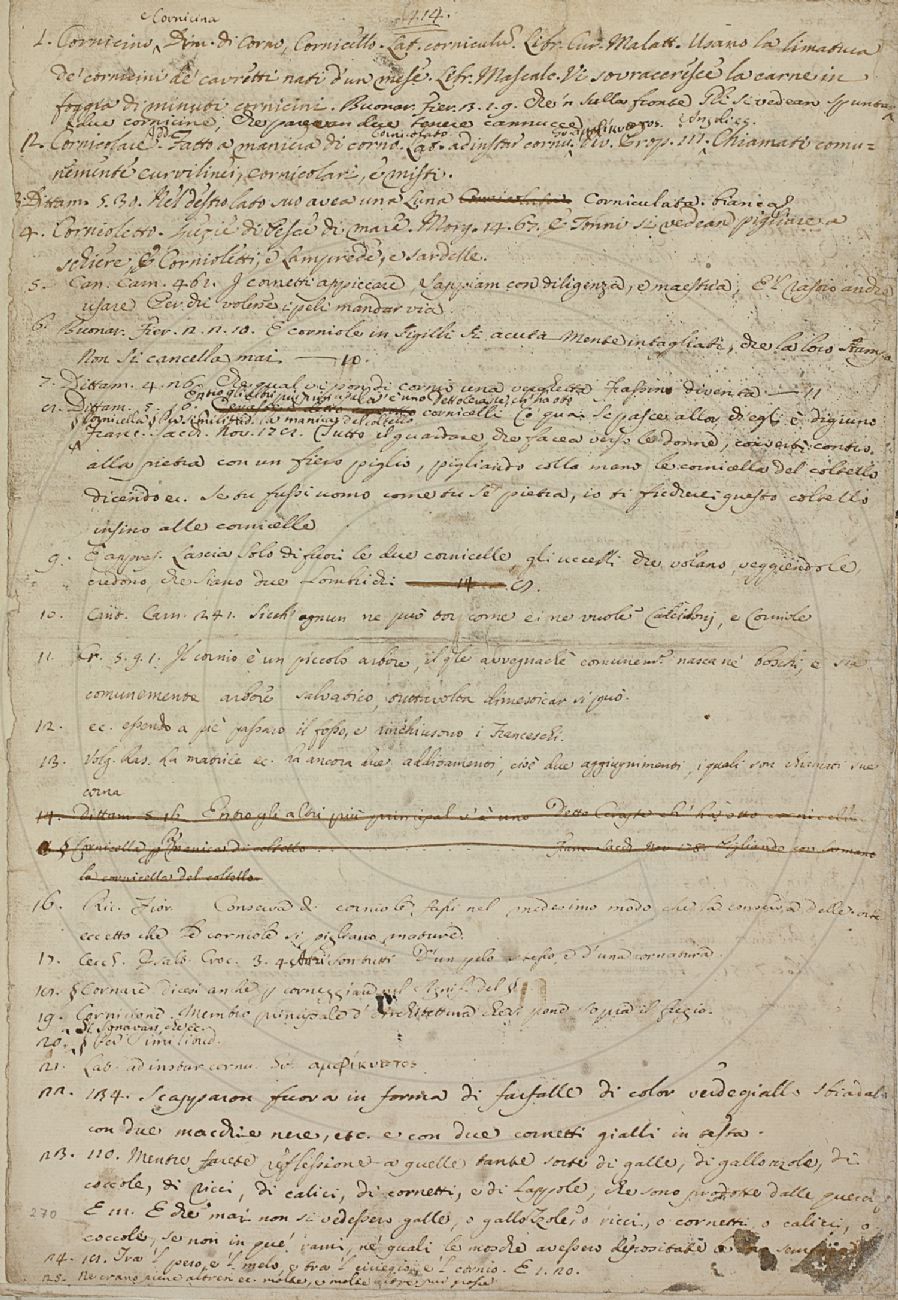 414.
e Cornicina
1. Cornicino, Dim. di Corno, Cornicello. Lat. corniculũ. Libr. Cur. Malatt. Usano la limatura
de' cornicini de' cavretti nati d'un mese. Libr. Mascalc. Vi sovraccresce la carne in
foggia di minuti cornicini. Buonar. Fier. 3. 1. 9. Che 'n sulla fronte Gli si vedean spuntar
due cornicine, Che parean due tenere cannucce
2. Cornicolare. Add. Fatto a maniera di corno. Cornicolato. Lat. ad instar cornu. Div. Prop. 111. Chiamati comu=
nemente curvilinei, cornicolari, e misti.
3. Dittam. 5. 30. Nel destro lato suo avea una Luna Corniculata bianca
4. Cornioletto. Spezie di Pesce di mare. Morg. 14. 67. E Tonni si vedean pigliare a
schiere E Cornioletti, e Lamprede, e sardelle.
5. Can. Carn. 461. I cornetti appiccare Sappiam con diligenza, e maestria,
usare Per chi volesse i peli mandar via.
6. Buonar. Fier. 2. 2. 10. E corniole in sigilli sì acuta mente intagliati, che la loro stampa
Non si cancella mai. — 10.
7. Dittam. 4. 26. una verghetta frassino diventa — 11
Entro gli altri più
8. Dittam. 5. 16. cornicelli Co' qua' si pasce allor ch'egli è digiuno
§ Cornicella § Per similitud. la manica del coltello
Franc. Sacch. Nov. 178. Tutto il guardare, che facea verso le donne, convertì contro
alla pietra con un fiero piglio, pigliando colla mano le cornicella del coltello
dicendo ec. Se tu fussi uomo come tu se' pietra, io ti ficcherei questo coltello
insino alle cornicelle
9. E appres. Lascia solo di fuori le due cornicelle gli uccelli che volano, veggiendole
credono, che sieno due Lombrichi — 14. — 8.
10. Cant. Carn. 241. Sicch' ognun ne può tor, come e' ne vuole e Corniole
11. Cr. 5. 9. 1. Il cornio è un piccolo arbore, il qle avvegnachè comunem. nasca ne' boschi, e sia
comunemente arbore salvatico, tuttavolta dimesticar si può.
12. ec. essendo a piè passaro il fosso, e inchiusono i Franceschi.
13. Volg. Ras. La matrice ec. ha ancora due additamenti, cioè due aggiugnimenti, i quali son chiamati sue
corna
14. Dittam 5. 16. Entro gli altri più principal v'è uno Detto Ceraste ch'ha otto cornicelli
§ Cornicella p manica di coltello Franc. Sacch. Nov. 178. Pigliando con la mano
la cornicella del coltello.
16. Ric. Fior. Conserva di corniole fassi nel medesimo modo che la conserva delle
eccetto che le corniole si pigliano mature.
17. Cecch. Esalt. Croc. 3. 4. son tutti D'un pelo e d'una cornatura.
18. § Cornare dicesi anche p corneggiare nel signif. del §
19. Cornicione. Membro principale d'Architettura che si pone sopra il fregio.
20. § Per similitud.
21. Lat. ad instar cornu. Gr. αμφίκυρτος
22. 134. Scapparon fuora in forma di farfalle di color verdegiallo sbiadato
con due macchie nere, etc. e con due cornetti gialli in testa.
23. 110. Mentre farete riflessione a quelle tante sorte di galle, di gallozzole, di
coccole, di ricci, di calici, di cornetti, e di Lappole, che sono prodotte dalle querci
E 111. E che mai non si vedessero galle, o gallozzole, o ricci, o cornetti, o calici, o
coccole, se non in que' rami, ne' quali le mosche avessero depositate
270
24. 101. Tra 'l pero, e 'l melo, e tra 'l ciriegio, e 'l cornio. E 1. 20.